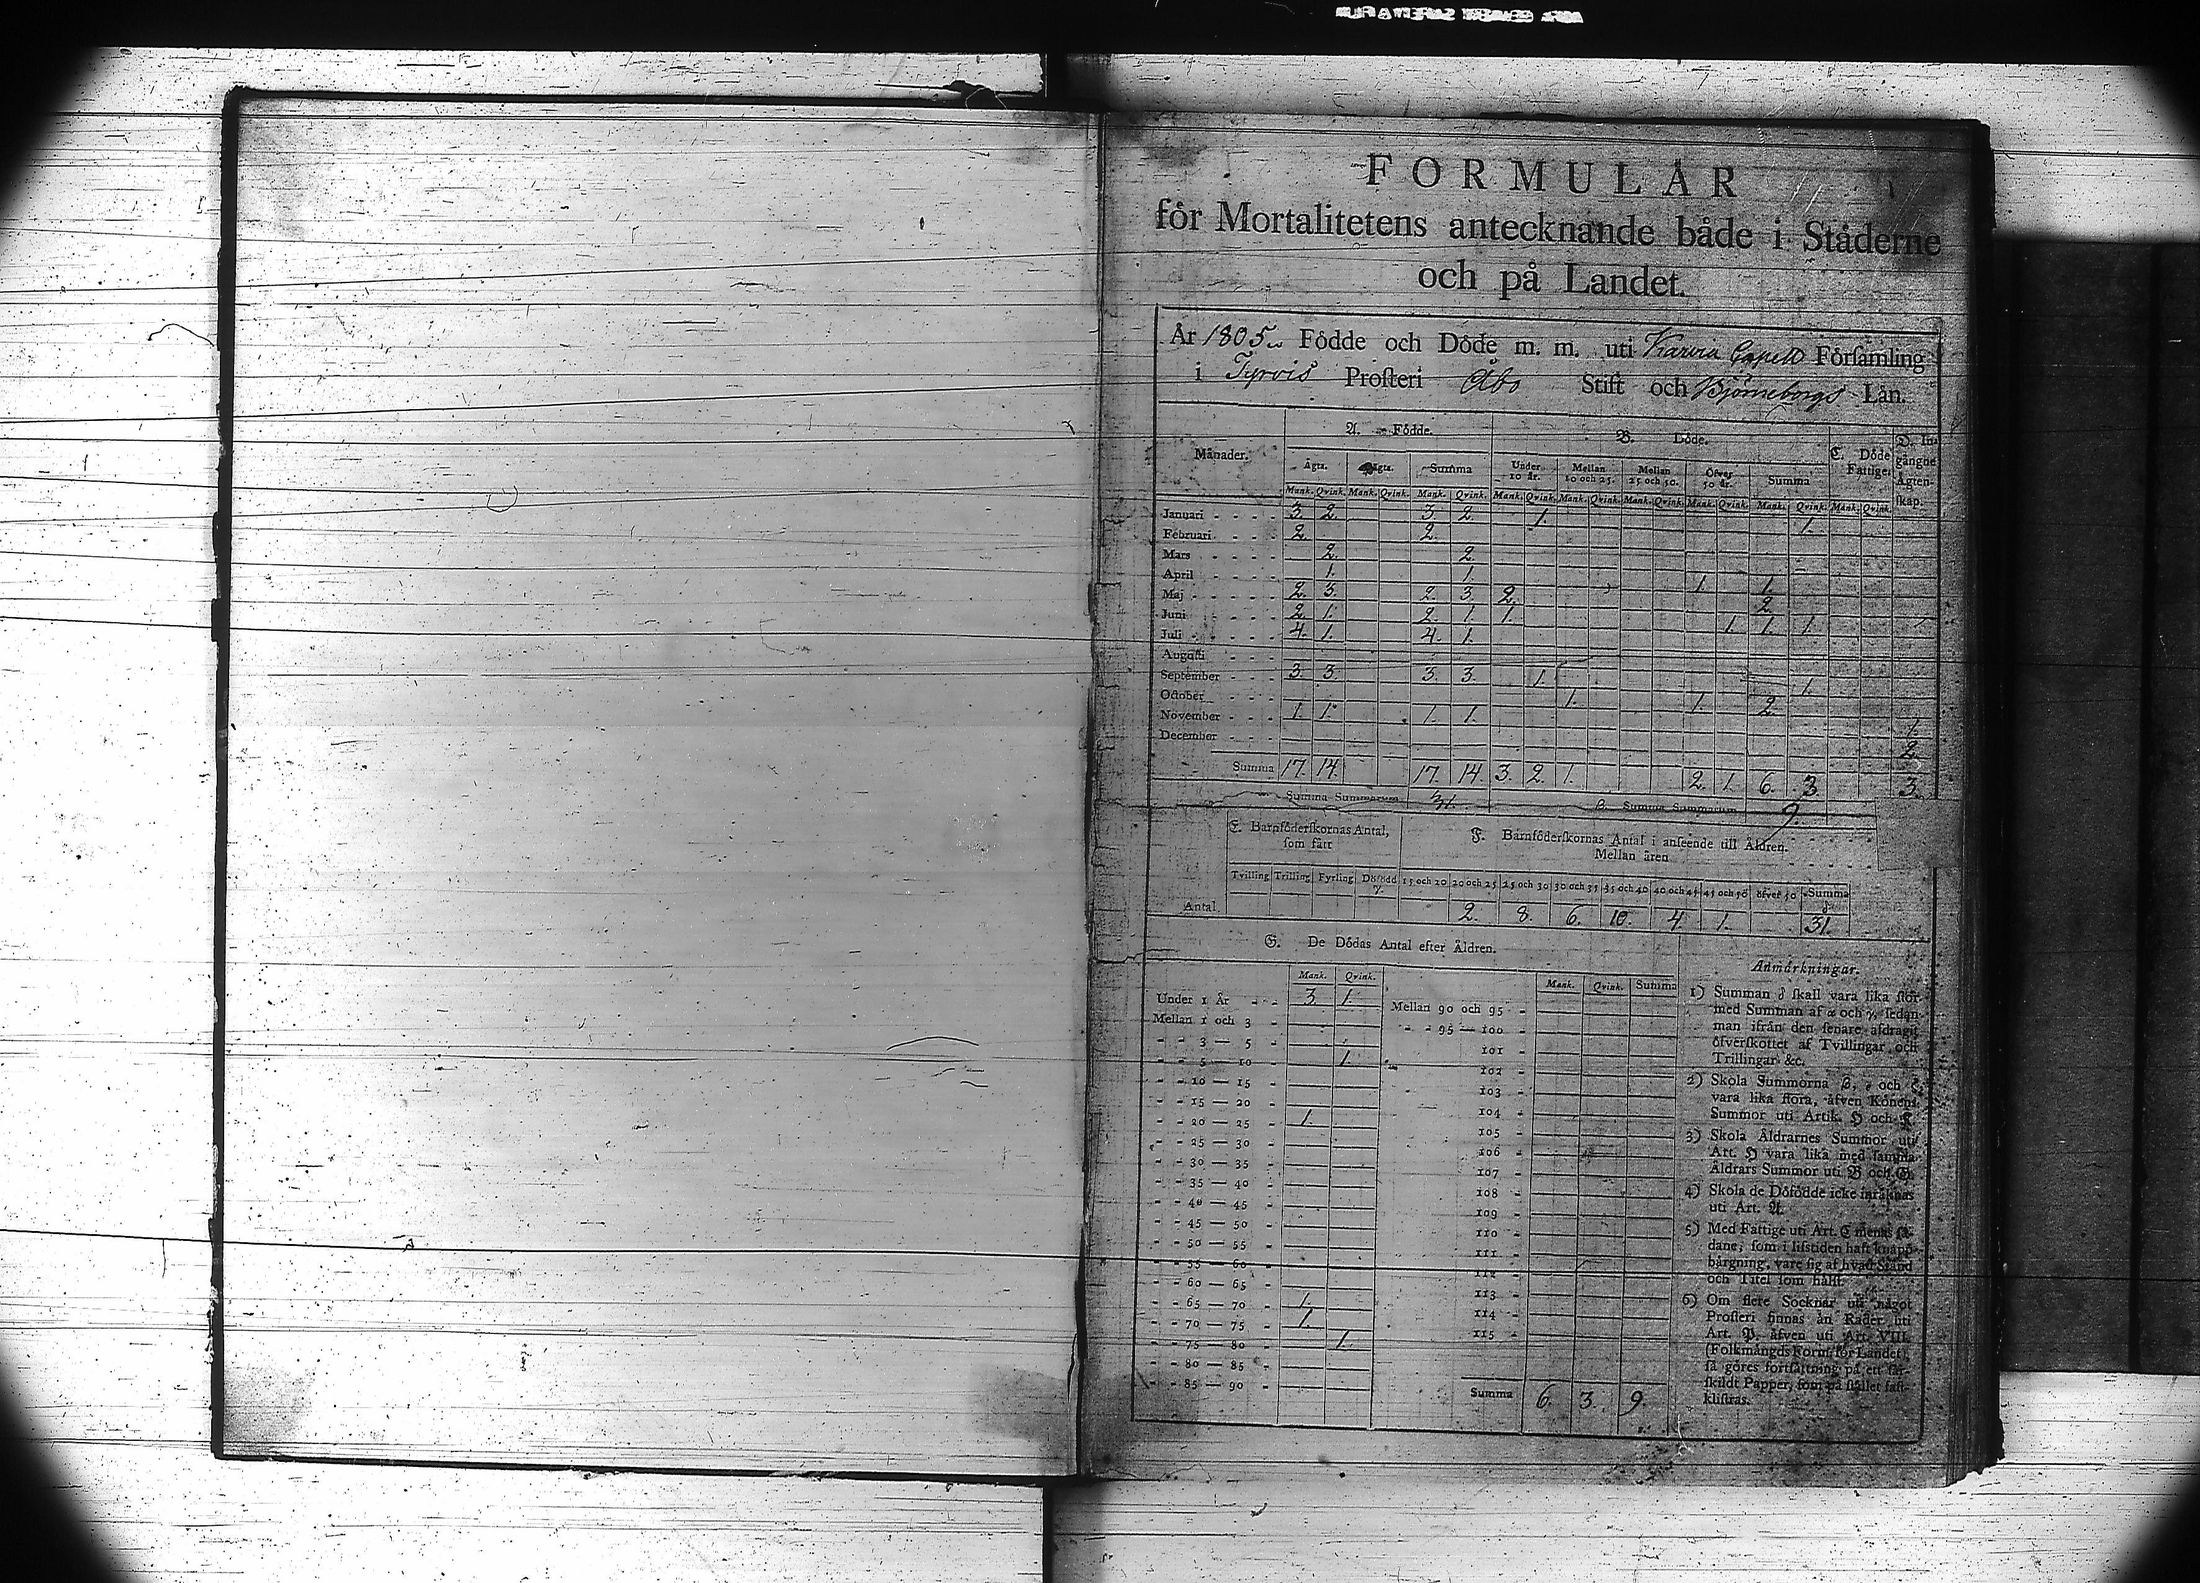 FORMULÅR
för Mortalitetens antecknande både i Städerne
och på Landet.
År 1805. Födde och Döde m. m. uti Karvia Capell Församling
i Tyrvis Prosteri Åbo Stift och Björneborgs Län.
Månader. A. Födde. B. Döde. C. Döde Fattige. D. Ingångne Ägtenskap.
Ägta. Oägta. Summa Under 10 år. Mellan 10 och 25. Mellan 25 och 50. Öfver 50 år. Summa
Mank. Qvink. Mank. Qvink. Mank. Qvink. Mank. Qvink. Mank. Qvink. Mank. Qvink. Mank. Qvink. Mank. Qvink. Mank. Qvink.
Januari - - - 3. 2. 3. 2. 1. 1.
Februari - - - 2. 2.
Mars - - - 2. 2.
April - - - 1. 1. 1. 1.
Maj - - - 2. 3. 2. 3. 2. 2.
Juni - - - 2. 1. 2. 1. 1. 1. 1. 1.
Juli - - - 4. 1. 4. 1.
Augusti - - -
September - - - 3. 3. 3. 3. 1. 1.
October - - - 1. 1. 2.
November - - - 1. 1. 1. 1. 1.
December - - - 2.
Summa 17. 14. 17. 14. 3. 2. 1. 2. 1. 6. 3 3.
Summa Summarum 31. β. Summa Summarum 9.
E. Barnföderskornas Antal, som fått
F. Barnföderskornas Antal i anseende till Åldren.
Mellan åren
Tvilling Trilling Fyrling Dödfödd γ. 15 och 20 20 och 25 25 och 30 30 och 35 35 och 40 40 och 45 45 och 50 öfver 50 Summa δ
Antal 2. 8. 6. 10. 4 1. 31.
G. De Dödas Antal efter Åldren.
Mank. Qvink.
Under 1 År - - 3. 1.
Mellan 1 och 3 -
- - 3 — 5 -
- - 5 — 10 - 1.
- - 10 — 15 -
- - 15 — 20 -
- - 20 — 25 - 1.
- - 25 — 30 -
- - 30 — 35 -
- - 35 — 40 -
- - 40 — 45 -
- - 45 — 50 -
- - 50 — 55 -
- - 55 — 60 -
- - 60 — 65 -
- - 65 — 70 - 1.
- - 70 — 75 - 1.
- - 75 — 80 - 1.
- - 80 — 85 -
- - 85 — 90 -
Mank. Qvink. Summa
Mellan 90 och 95 -
- - 95 — 100 -
101 -
102 -
103 -
104 -
105 -
106 -
107 -
108 -
109 -
110 -
111 -
112 -
113 -
114 -
115 -
Summa 6. 3. 9.
Anmärkningar.
1) Summan δ skall vara lika stor
med Summan af α och γ, sedan
man ifrån den senare afdragit
öfverskottet af Tvillingar och
Trillingar &c.
2) Skola Summorna β, ε och ζ
vara lika stora, äfven Könens
Summor uti Artik. H och
3) Skola Åldrarnes Summor uti
Art. H vara lika med samma
Åldrars Summor uti B och G.
4) Skola de Döfödde icke inräknas
uti Art. A.
5) Med Fattige uti Art. C menas sådane,
som i lifstiden haft knapp
bärgning, vare sig af hvad Stånd
och Titel som hälst.
6) Om flere Socknar uti något
Prosteri finnas än Rader uti
Art. P, äfven uti Art. VIII.
(Folkmängds Form. för Landet),
så göres fortsättning på ett särskildt
Papper, som på stället fastklistras.